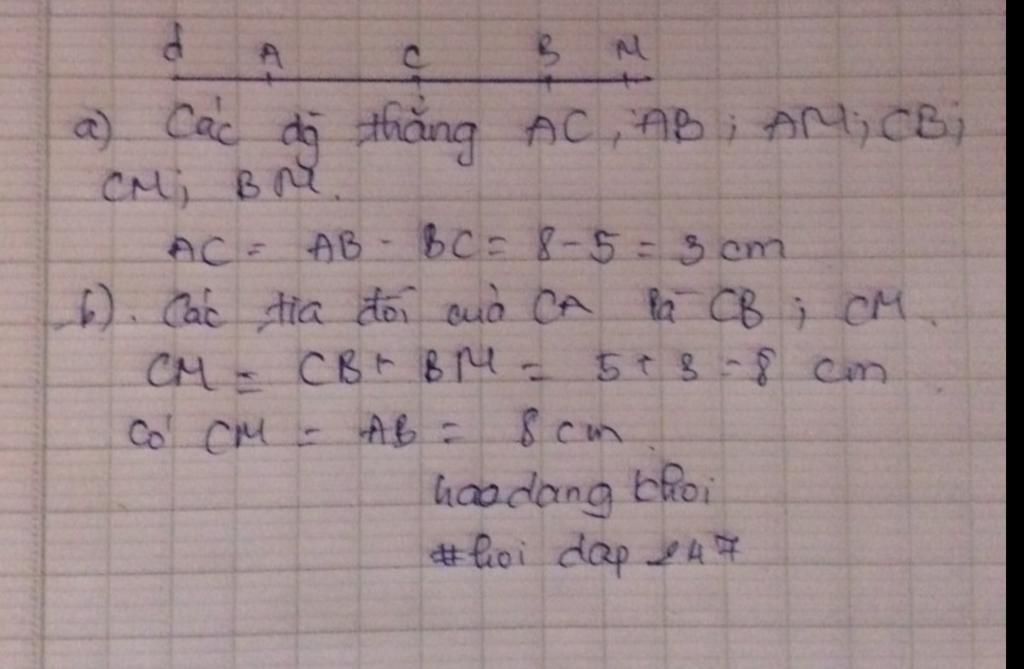 d A C B M
a) Các đg thẳng AC; AB; AM; CB;
CM; BM.
AC = AB - BC = 8 - 5 = 3 cm
b). Các tia đối cuả CA là CB; CM.
CM = CB + BM = 5 + 3 = 8 cm
Có CM = AB = 8 cm.
haodang khoi
#hoi dap 247